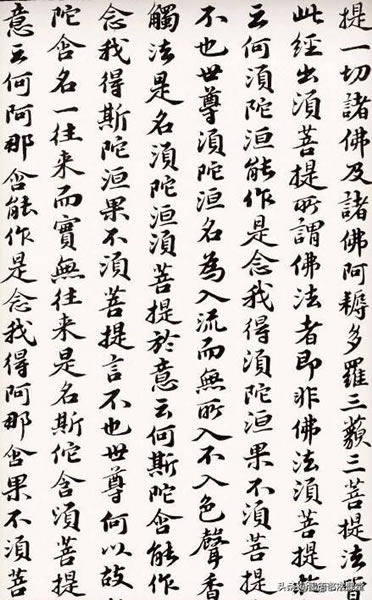 提一切諸佛及諸佛阿耨多羅三藐三菩提法皆
此經出須菩提所謂佛法者即非佛法須菩提於
云何須陀洹能作是念我得須陀洹果不須菩提
不也世尊須陀洹名為入流而無所入不入色聲香
觸法是名須陀洹須菩提於意云何斯陀含能作
念我得斯陀洹果不須菩提言不也世尊何以故
陀含名一往来而實無往来是名斯佗含須菩提
意云何阿那含能作是念我得阿那含果不須菩